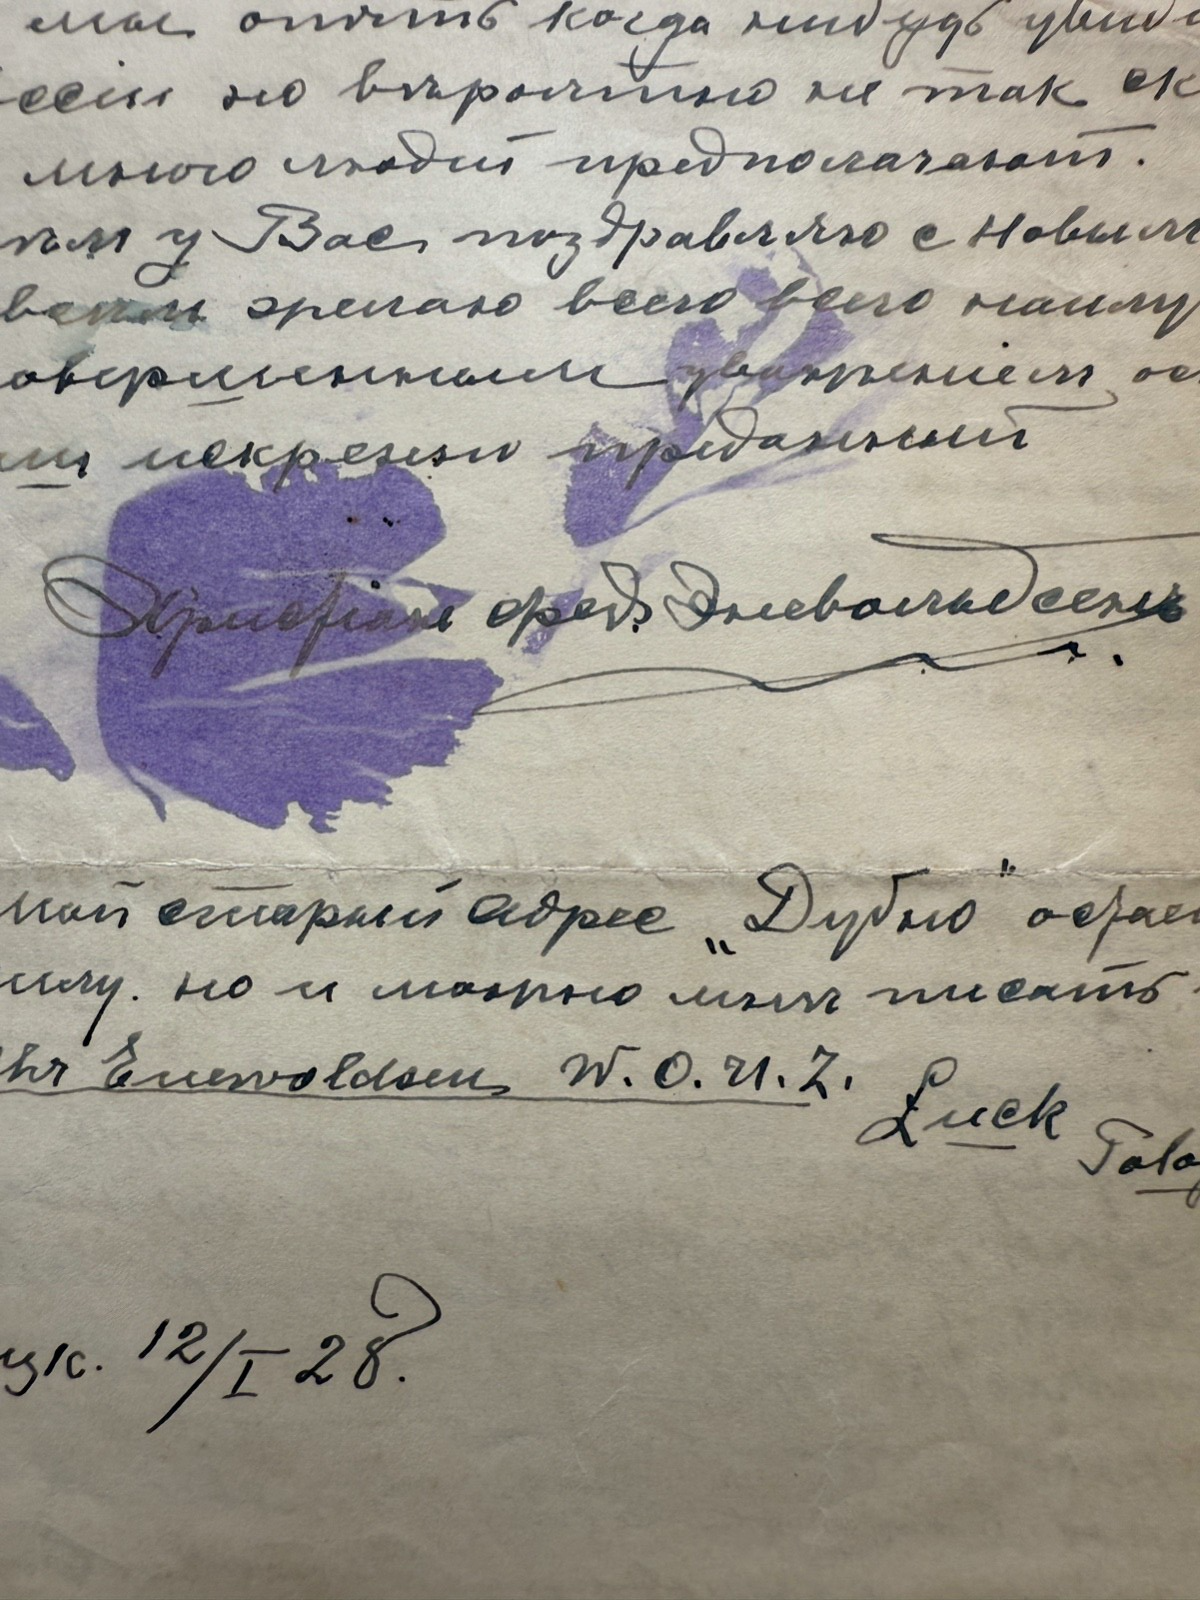 мы опять когда нибудь увиди
ссіи но вѣроятно не так ск
много людей предполагают.
ѣм у Вас, поздравляю с Новым
вам желаю всего всего наилу
овершенным уваженіем ос
ш искренно преданный
Христіан фред. Эневольдсенъ
мой старый адрес „Дубно" остает
илу. но и можно мнѣ писать
Chr Enewoldsen W.O.U.Z. Luck
ук. 12/I 28.